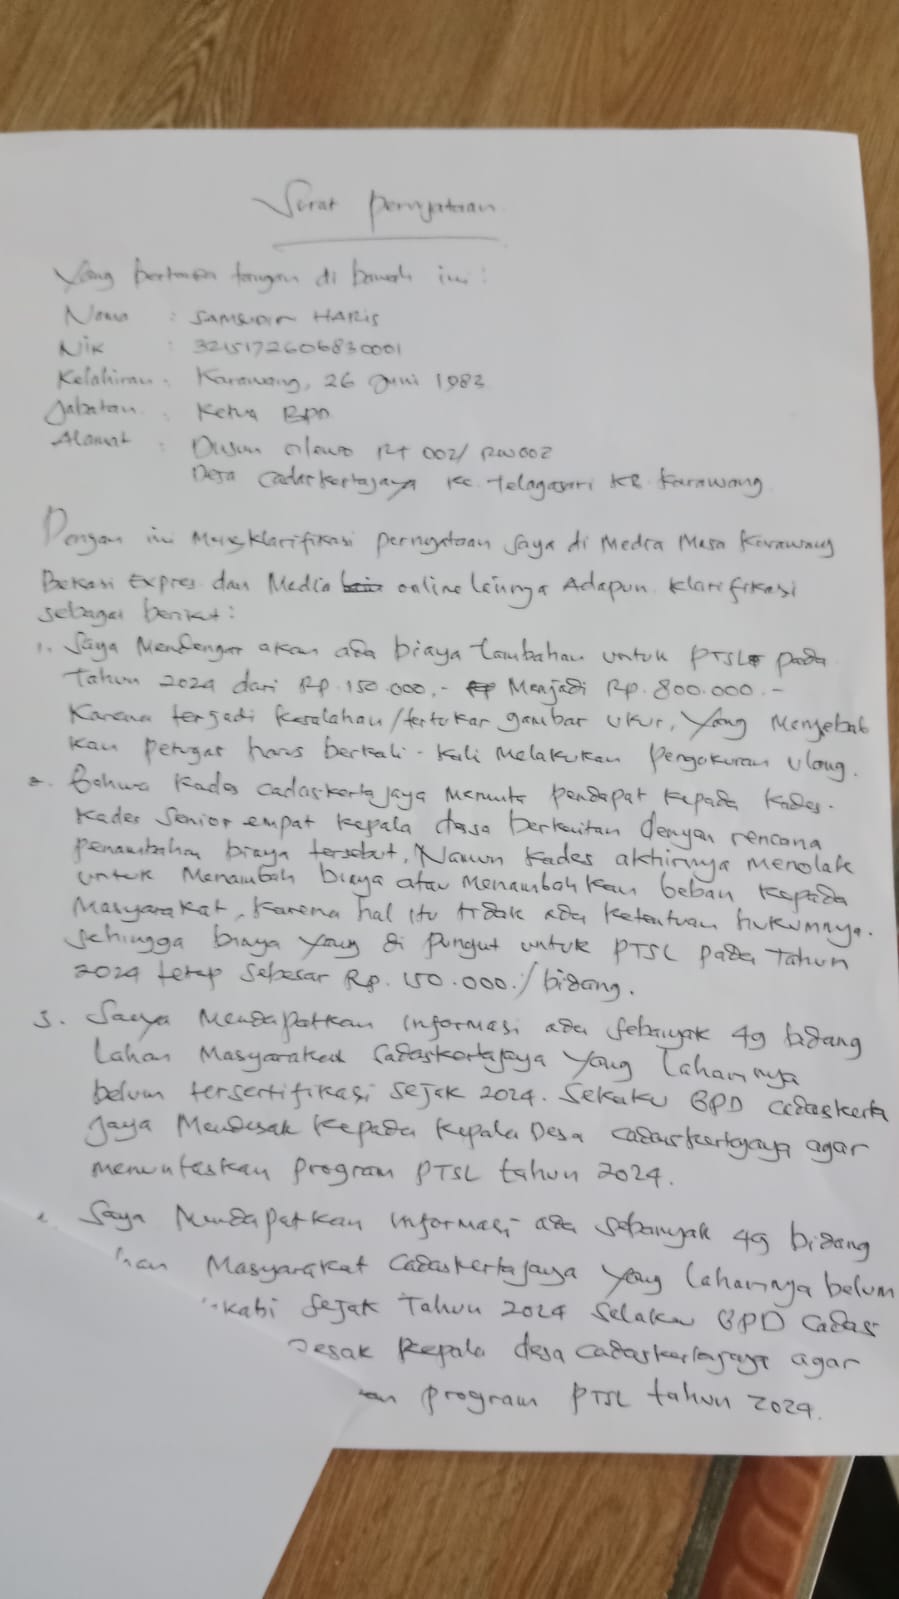 Surat pernyataan
Yang bertanda tangan di bawah ini :
Nama : SAMSUDIN HARIS
Nik : 3215172606830001
Kelahiran : Karawang, 26 Juni 1983
Jabatan : Ketua BPD
Alamat : Dusun Cilewo RT 002/ RW002
Desa Cadaskertajaya Kc. Telagasari KB. Karawang
Dengan ini Mengklarifikasi pernyataan saya di Media Masa Karawang
Bekasi Expres dan Media online lainnya Adapun klarifikasi
sebagai berikut :
1. Saya Mendengar akan ada biaya tambahan untuk PTSL pada
tahun 2024 dari Rp. 150.000,- Menjadi Rp. 800.000.-
Karena terjadi kesalahan/tertukar gambar ukur, yang Menyebab
kan petugas harus berkali-kali Melakukan pengukuran ulang.
2. Bahwa Kades Cadaskertajaya Meminta pendapat kepada Kades-
Kades Senior empat kepala desa berkaitan dengan rencana
penambahan biaya tersebut, Namun Kades akhirnya Menolak
untuk Menambah biaya atau Menambahkan beban kepada
Masyarakat, Karena hal itu tidak ada ketentuan hukumnya.
sehingga biaya yang di pungut untuk PTSL pada tahun
2024 tetap sebesar Rp. 150.000./bidang.
3. Saya Mendapatkan informasi ada sebanyak 49 bidang
Lahan Masyarakat Cadaskertajaya yang lahannya
belum tersertifikasi sejak 2024. Sekaku BPD Cadaskerta
jaya Mendesak kepada kepala Desa Cadaskertajaya agar
menuntaskan program PTSL tahun 2024.
Saya Mendapatkan informasi ada sebanyak 49 bidang
han Masyarakat Cadaskertajaya yang lahannya belum
kasi sejak Tahun 2024 Selaku BPD Cadas
Desak kepala desa Cadaskertajaya agar
an program PTSL tahun 2024.